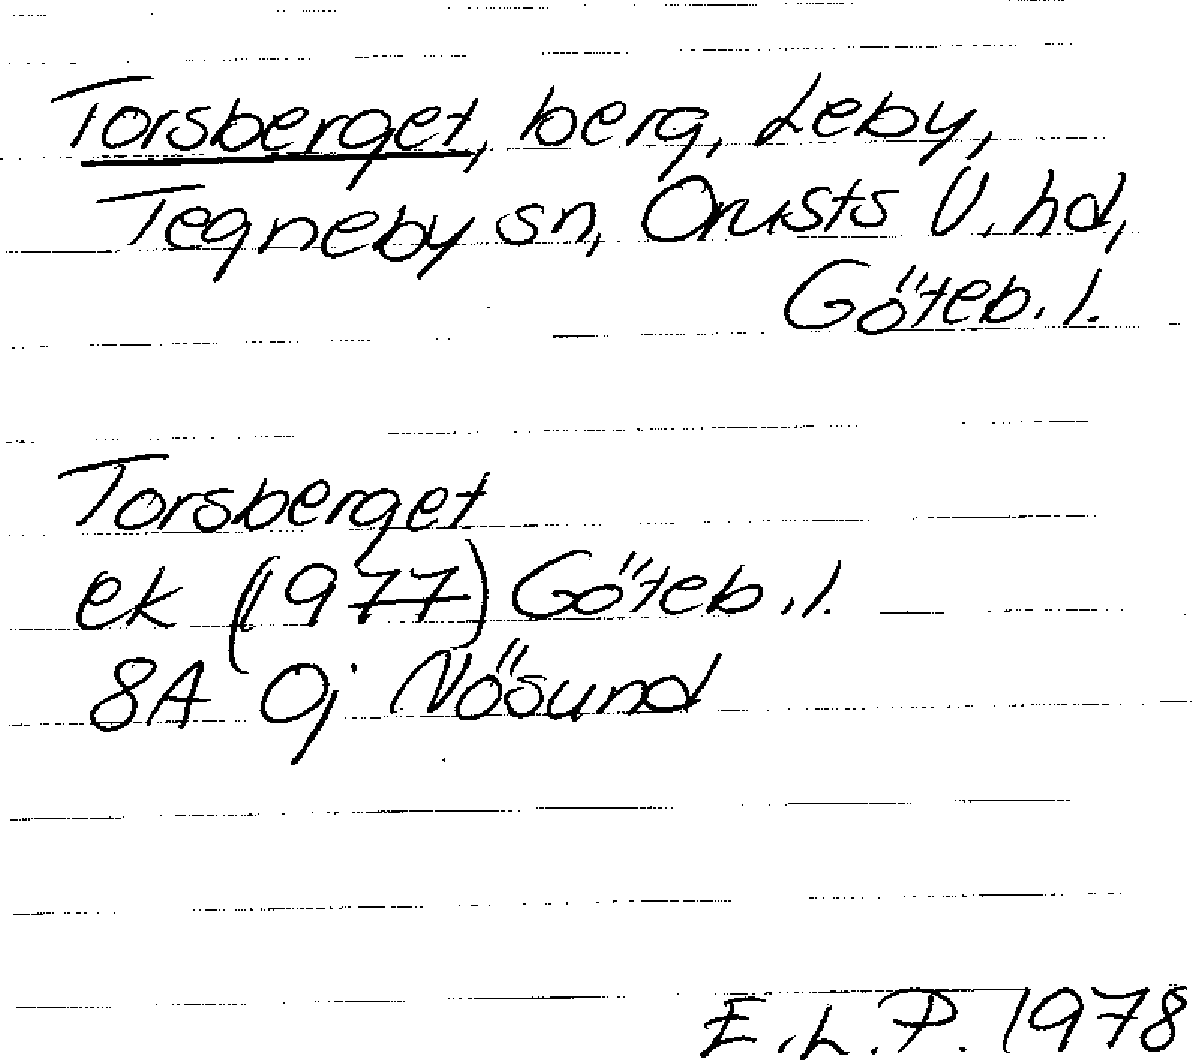 Torsberget, berg, Leby,
Tegneby sn, Orusts V. hd,
Göteb. l.
Torsberget
ek (1977) Göteb. l.
8A 0j Nösund
E. L. P. 1978